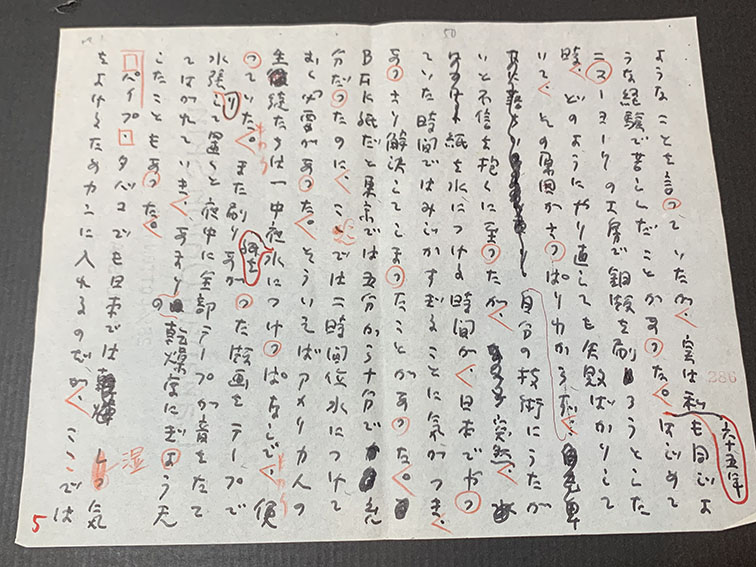 ようなことを言っていたが、実は私も同じよ
うな経験で苦しんだことがあった。はじめて
六十五年
ニューヨークの工房で銅版を刷ろうとした
時、どのようにやり直しても失敗ばかりして
いて、その原因がさっぱりわからず、
自分の技術にうたが
いと不信を抱くに至ったが、突然、
紙を水につける時間が、日本でやっ
ていた時間ではみじかすぎることに気がつき、
あっさり解決してしまったことがあった。
BFK紙だと東京では五分から十分で充
分だったのに、ここでは二時間位水につけて
おく必要があった。そういえばアメリカ人の
生徒たちは一中夜水につけっぱなしで、使
っていた。また刷りあがった版画をテープで
水張りして置くと夜中に全部テープが音をたて
てはがれていき、あまりの乾燥度にぎょう天
したこともあった。
パイプ・タバコでも日本では湿っ気
をよけるためカンに入れるのだが、ここでは
5
286
50